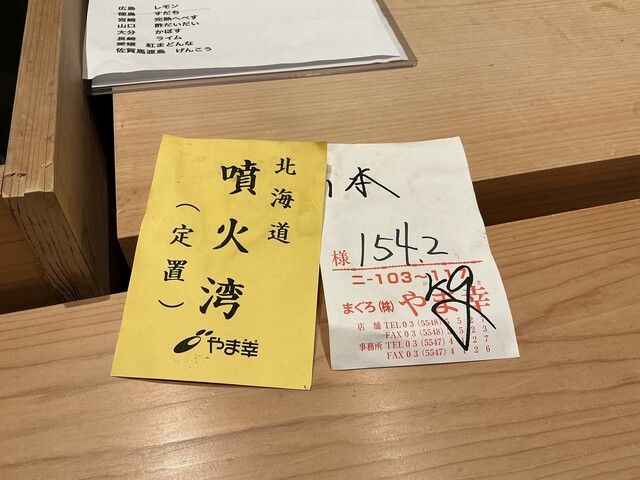 広島 レモン
徳島 すだち
宮崎 完熟へべす
山口 酢だいだい
大分 かぼす
長崎 ライム
愛媛 紅まどんな
佐賀馬渡島 げんこう
北海道
噴火湾
(定置)
やま幸
本
様 154.2
kg
ニ-103~117
まぐろ(株)やま幸
店舗 TEL 03 (5548)
FAX 03 (5548)
事務所 TEL 03 (5547)
FAX 03 (5547)